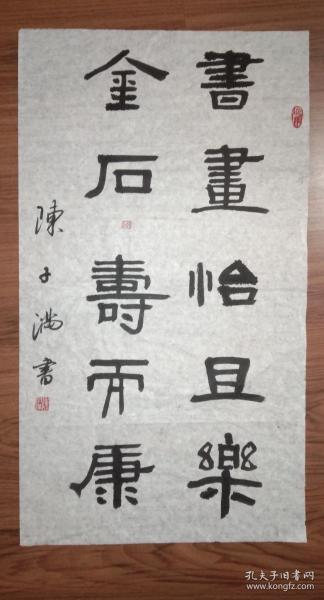 書畫怡且樂
金石壽而康
陳子滿書
孔夫子旧书网